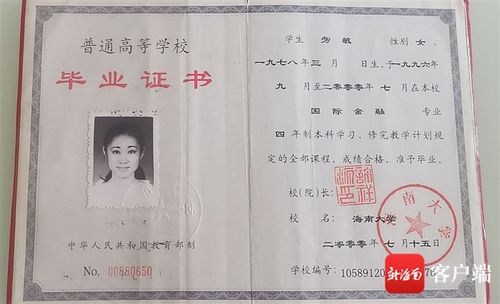 普通高等学校
毕业证书
中华人民共和国教育部制
No. 00880650
学生 劳敏 性别 女,
一九七八年三月 日生,于一九九六年
九月至二〇〇〇年七月在本校
国际金融 专业
四年制本科学习,修完教学计划规
定的全部课程,成绩合格,准予毕业。
校(院)长:
校 名: 海南大学
二〇〇〇年七月十五日
学校编号: 10589120
南大学
新海南
客户端